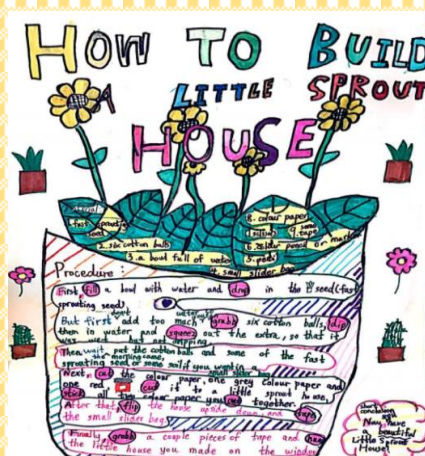 HOW TO BUILD
A LITTLE SPROUT
HOUSE
1. fast sprouting seed
2. six cotton balls
3. a bowl full of water
4. small slider bag
5. pods
6. colour pencil or marker
8. colour paper
9. tape
Procedure:
First, fill a bowl with water and drop in the seed (fast
sprouting seed)
But first don't add too much water, grabb six cotton balls, dip
them in water and squeez out the extra, so that it
was wet but not dripping.
Then wait put the cotton balls and some of the fast
the morning came,
sprouting seed or some soil if you want in small slider bag
Next, cut the colour paper, one grey colour paper and
one red, cut it to a little sprout house,
stick all the colour paper you together.
After that, flip the house upside down, and tape
the small slider bag.
Finally, grabb a couple pieces of tape and
the little house you made on the window
short
conclusion
Now, you
have a
beautiful
Little Sprout
House!